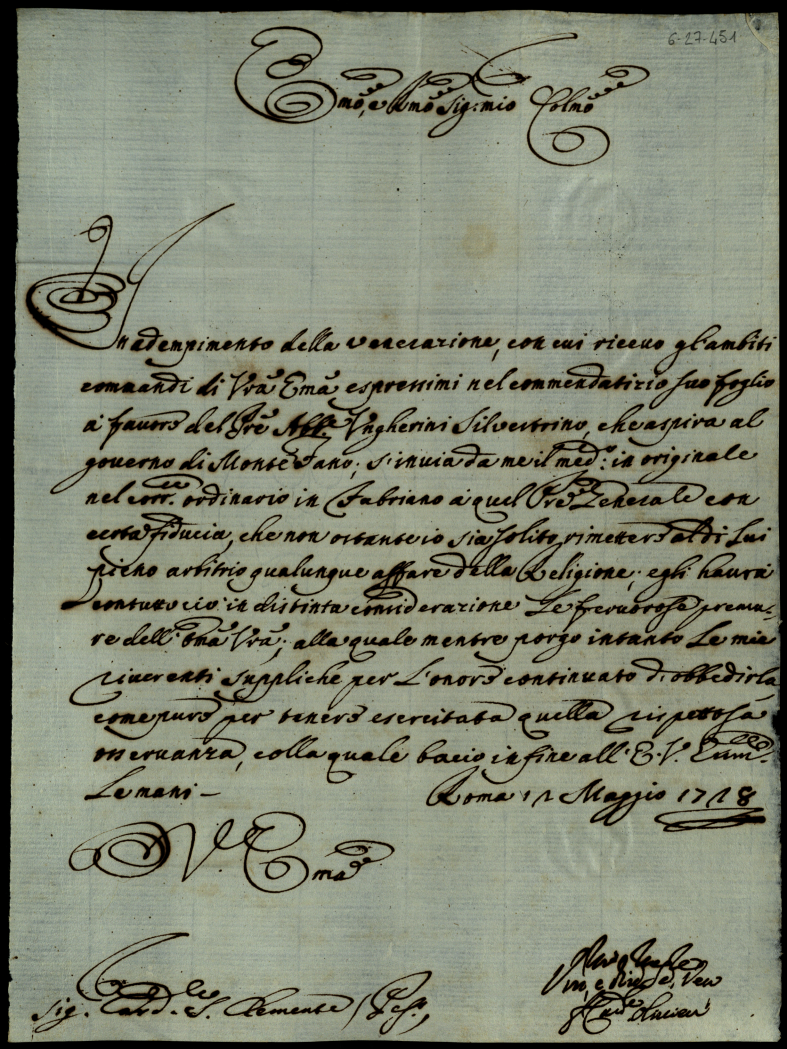 6-27-451
Emõ, e Rmõ Sig: mio Colmõ
In adempimento della venerazione, con cui ricevo gl'ambiti
commandi di Vrã Emã espressimi nel commendatizio suo foglio
à favore del Pre Abb.e Ungherini Silvestrino, che aspira al
governo di Monte Fano; s'invia da me il med.o in originale
nel corr.te ordinario in Fabriano à quel Pre Generale con
certa fiducia, che non ostante io sia solito rimettere al di Lui
pieno arbitrio qualunque affare della Religione; egli haurà
contuttociò in distinta considerazione Le fervorose premu-
re dell'Emã Vrã; alla quale mentre porgo intanto Le mie
riverenti suppliche per L'onore continuato d'obbedirla
come pure per tenere esercitata quella rispettosa
osservanza, colla quale bacio in fine all'E. V. Eum.te
Le mani - Roma 12 Maggio 1728
V. Emã
Sig. Card.le S. Clemente